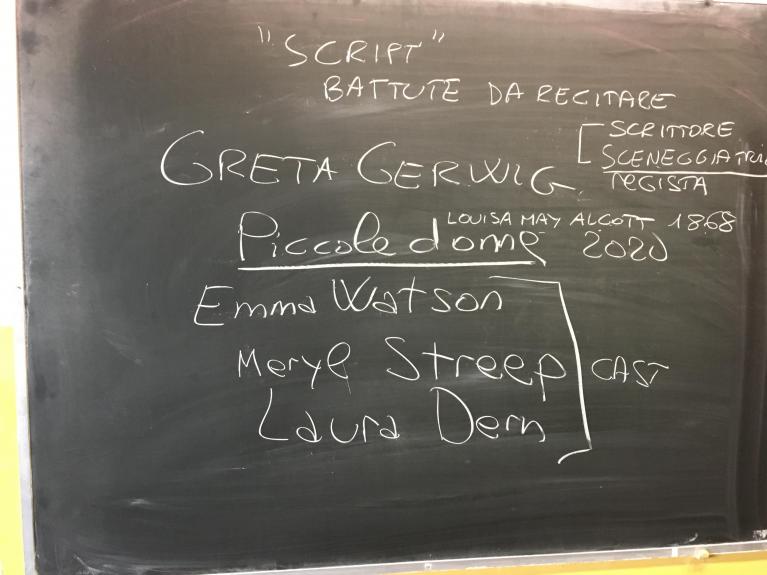 "SCRIPT"
BATTUTE DA RECITARE
SCRITTORE
GRETA GERWIG SCENEGGIATRI
REGISTA
LOUISA MAY ALCOTT 1868
Piccole donne 2020
Emma Watson
Meryl Streep CAST
Laura Dern